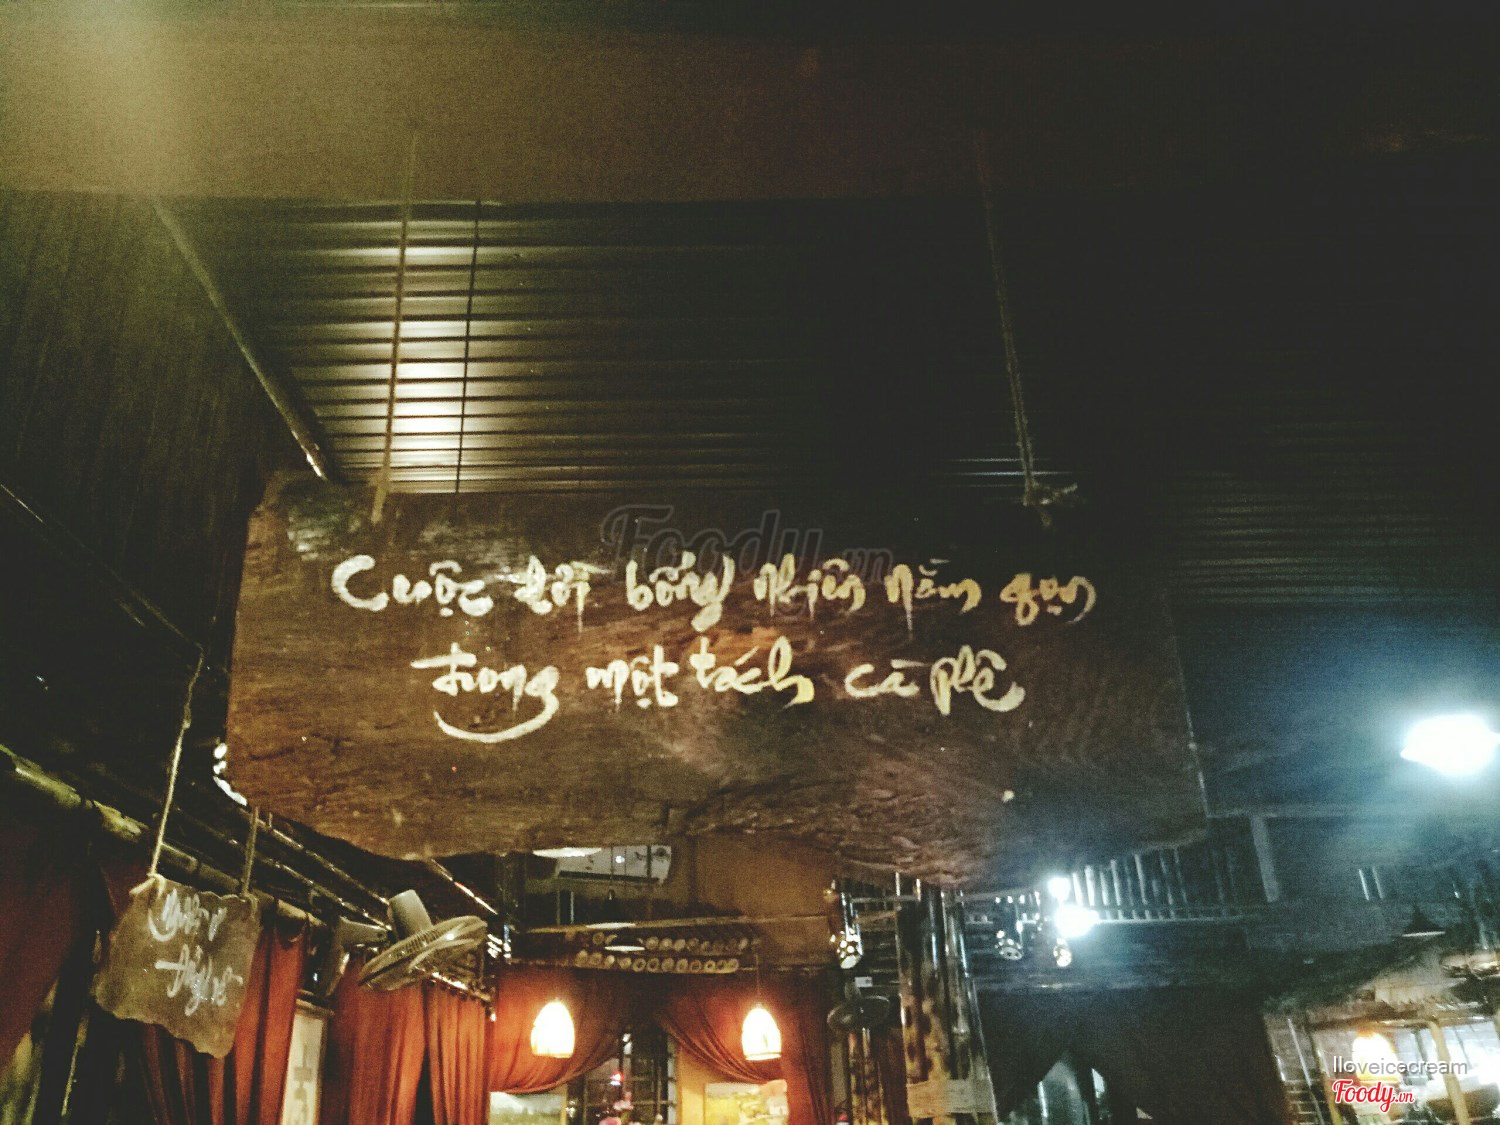 Foody.vn
Cuộc đời bỗng nhiên nằm gọn
trong một tách cà phê
Iloveicecream
Foody.vn